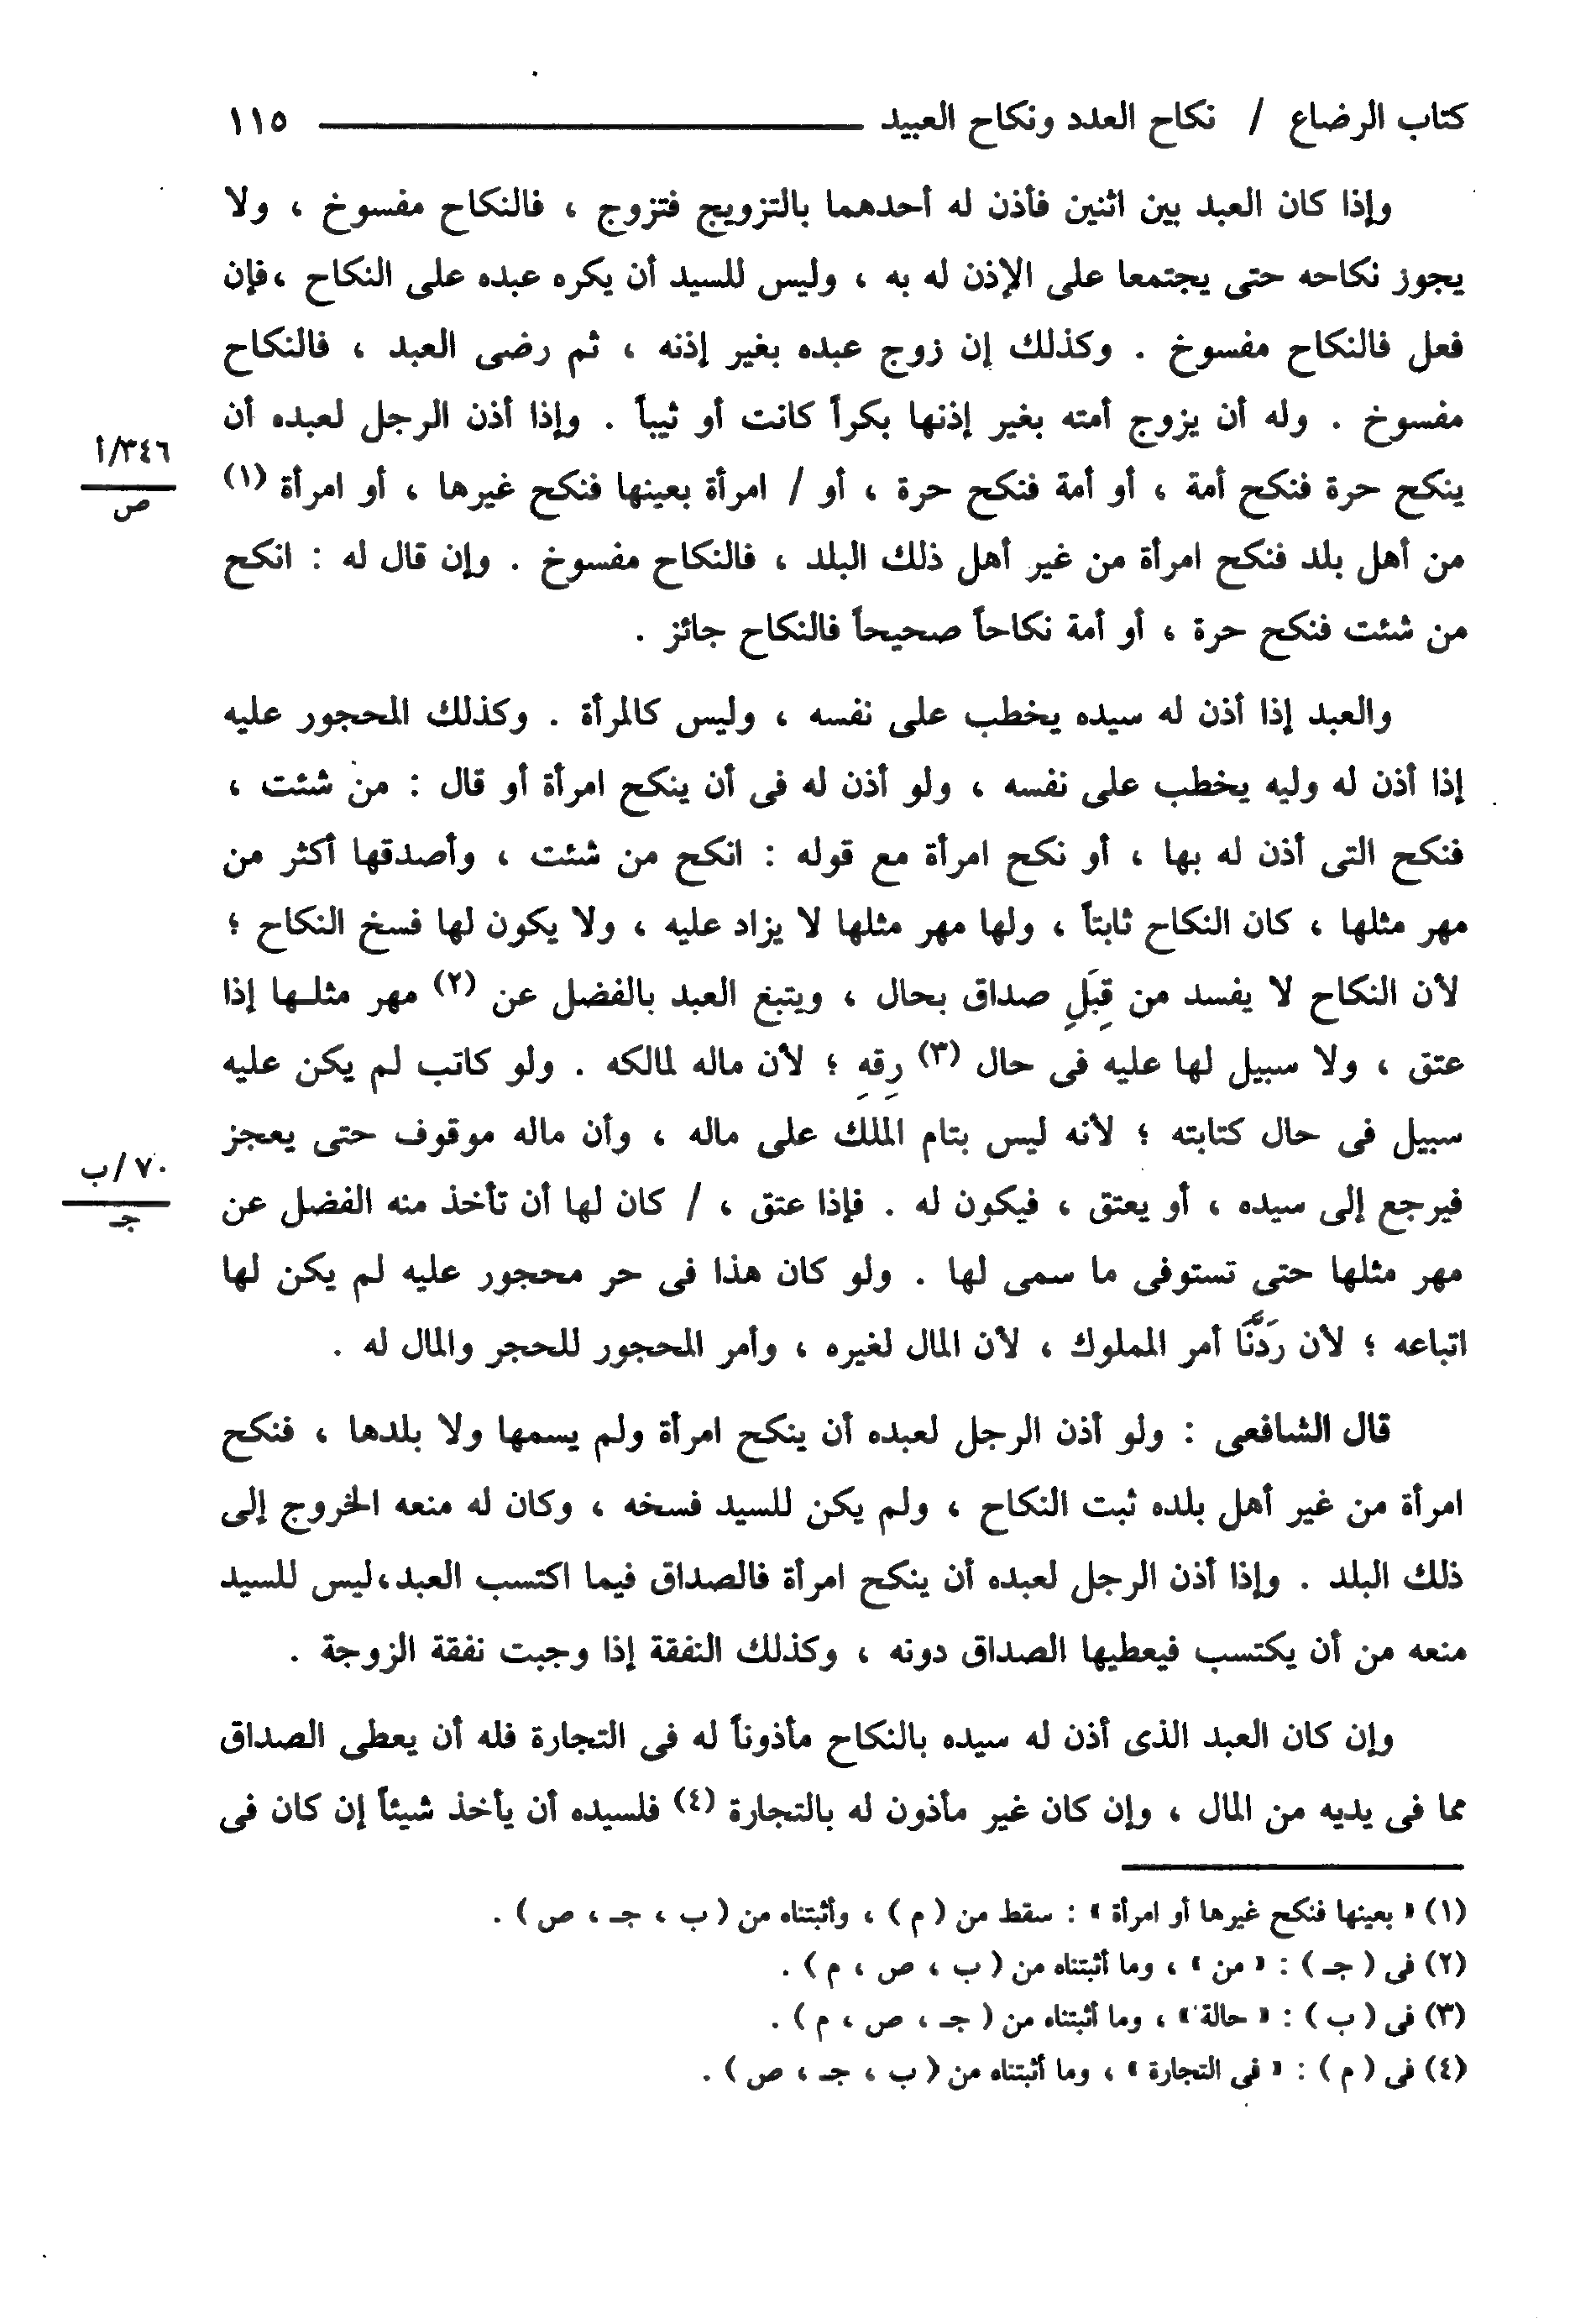 كتاب الرضاع / نكاح العدد ونكاح العبيد ١١٥
وإذا كان العبد بين اثنين فأذن له أحدهما بالتزويج فتزوج ، فالنكاح مفسوخ ، ولا
يجوز نكاحه حتى يجتمعا على الإذن له به ، وليس للسيد أن يكره عبده على النكاح ،فإن
فعل فالنكاح مفسوخ . وكذلك إن زوج عبده بغير إذنه ، ثم رضى العبد ، فالنكاح
مفسوخ . وله أن يزوج أمته بغير إذنها بكراً كانت أو ثيباً . وإذا أذن الرجل لعبده أن
٣٤٦/أ
ينكح حرة فنكح أمة ، أو أمة فنكح حرة ، أو / امرأة بعينها فنكح غيرها ، أو امرأة (١)
ص
من أهل بلد فنكح امرأة من غير أهل ذلك البلد ، فالنكاح مفسوخ . وإن قال له : انكح
من شئت فنكح حرة ، أو أمة نكاحاً صحيحاً فالنكاح جائز .
والعبد إذا أذن له سيده يخطب على نفسه ، وليس كالمرأة . وكذلك المحجور عليه
إذا أذن له وليه يخطب على نفسه ، ولو أذن له فى أن ينكح امرأة أو قال : من شئت ،
فنكح التى أذن له بها ، أو نكح امرأة مع قوله : انكح من شئت ، وأصدقها أكثر من
مهر مثلها ، كان النكاح ثابتاً ، ولها مهر مثلها لا يزاد عليه ، ولا يكون لها فسخ النكاح ؛
لأن النكاح لا يفسد من قِبَلِ صداق بحال ، ويتبغ العبد بالفضل عن (٢) مهر مثلـها إذا
عتق ، ولا سبيل لها عليه فى حال (٣) رِقهِ ؛ لأن ماله لمالكه . ولو كاتب لم يكن عليه
سبيل فى حال كتابته ؛ لأنه ليس بتام الملك على ماله ، وأن ماله موقوف حتى يعجز
٧٠/ب
فيرجع إلى سيده ، أو يعتق ، فيكون له . فإذا عتق ، / كان لها أن تأخذ منه الفضل عن
جـ
مهر مثلها حتى تستوفى ما سمى لها . ولو كان هذا فى حر محجور عليه لم يكن لها
اتباعه ؛ لأن رَدَّنَا أمر المملوك ، لأن المال لغيره ، وأمر المحجور للحجر والمال له .
قال الشافعى : ولو أذن الرجل لعبده أن ينكح امرأة ولم يسمها ولا بلدها ، فنكح
امرأة من غير أهل بلده ثبت النكاح ، ولم يكن للسيد فسخه ، وكان له منعه الخروج إلى
ذلك البلد . وإذا أذن الرجل لعبده أن ينكح امرأة فالصداق فيما اكتسب العبد،ليس للسيد
منعه من أن يكتسب فيعطيها الصداق دونه ، وكذلك النفقة إذا وجبت نفقة الزوجة .
وإن كان العبد الذى أذن له سيده بالنكاح مأذوناً له فى التجارة فله أن يعطى الصداق
مما فى يديه من المال ، وإن كان غير مأذون له بالتجارة (٤) فلسيده أن يأخذ شيئاً إن كان فى
(١) « بعينها فنكح غيرها أو امرأة » : سقط من ( م ) ، وأثبتناه من ( ب ، جـ ، ص ) .
(٢) فى ( جـ ) : « من » ، وما أثبتناه من ( ب ، ص ، م ) .
(٣) فى ( ب ) : « حالة » ، وما أثبتناه من ( جـ ، ص ، م ) .
(٤) فى ( م ) : « فى التجارة » ، وما أثبتناه من ( ب ، جـ ، ص ) .